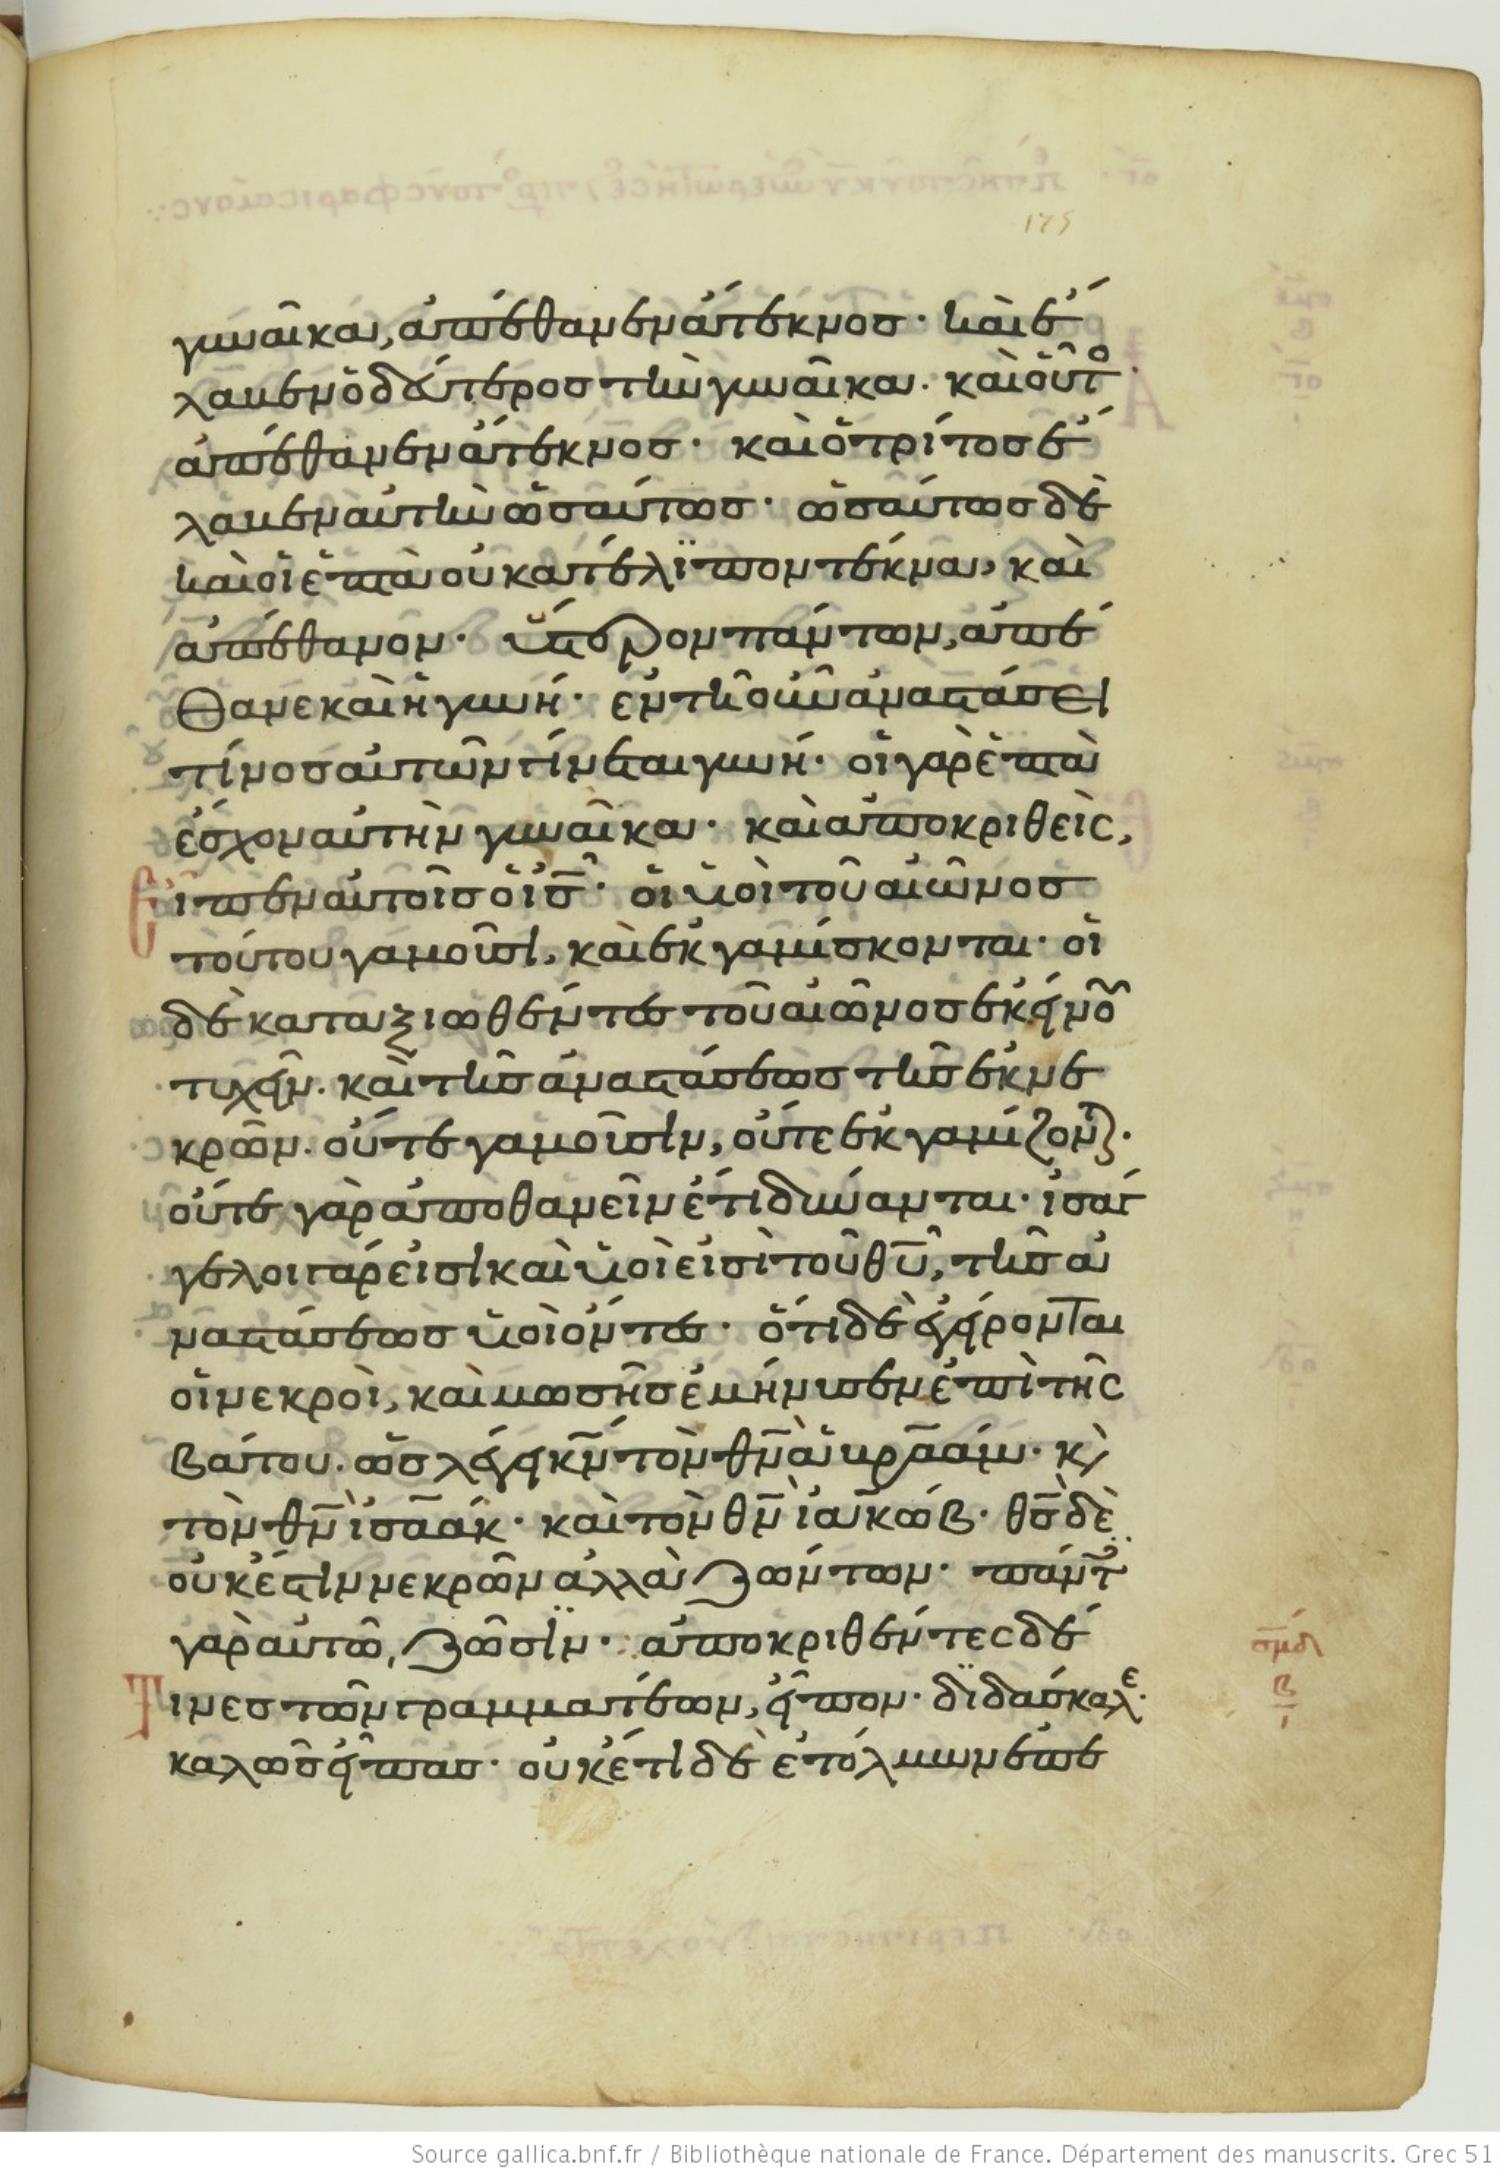 175
γυναῖκα, ἀπέθανεν ἄτεκνος· καὶ ἔ
λαβεν ὁ δεύτερος τὴν γυναῖκα. καὶ οὗτο
ἀπέθανεν ἄτεκνος· καὶ ὁ τρίτος ἔ
λαβεν αὐτὴν ὡσαύτως· ὡσαύτως δὲ
καὶ οἱ ἑπτὰ οὐ κατέλϊπον τέκνα, καὶ
ἀπέθανον· ὕστερον πάντων, ἀπέ
θανε καὶ ἡ γυνή· ἐν τῇ οὖν ἀναστάσει
τίνος αὐτῶν γίνεται γυνή· οἱ γὰρ ἑπτὰ
ἔσχον αὐτὴν γυναῖκα· καὶ ἀποκριθεὶς,
Εἶπεν αὐτοῖς ὁ ἰς̅· οἱ υἱοὶ τοῦ αἰῶνος
τούτου γαμοῦσι, καὶ ἐκγαμίσκονται· οἱ
δὲ καταξιωθέντες τοῦ αἰῶνος ἐκείνου
τυχεῖν. καὶ τῆς ἀναστάσεως τῆς ἐκ νε
κρῶν. οὔτε γαμοῦσιν, οὔτε ἐκγαμίζονται·
οὔτε γὰρ ἀποθανεῖν ἔτι δύνανται· ἰσάγ
γελοι γάρ εἰσι καὶ υἱοὶ εἰσὶ τοῦ θυ̅, τῆς ἀ
ναστάσεως υἱοὶ ὄντες· ὅτι δὲ ἐγείρονται
οἱ νεκροὶ, καὶ μωσῆς ἐμήνυσεν ἐπὶ τῆς
βάτου. ὡς λέγει κν̅ τὸν θν̅ ἀβραάμ· κὶ
τὸν θν̅ ἰσαάκ· καὶ τὸν θν̅ ἰακώβ· θς̅ δὲ
οὐκ ἔστιν νεκρῶν ἀλλὰ ζώντων· πάντες
γὰρ αὐτῶ, ζῶσϊν· ἀποκριθέντες δέ
Τινες τῶν γραμματέων, εἶπον· δϊδάσκαλε·
καλῶς εἶπας· οὐκέτι δὲ ἐτόλμων ἐπε
σμδ
β
Source gallica.bnf.fr / Bibliothèque nationale de France. Département des manuscrits. Grec 51